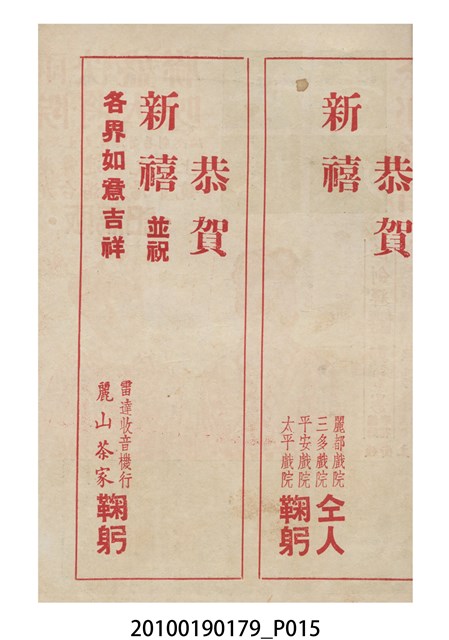 恭賀
新禧
麗都戲院
三多戲院
平安戲院
太平戲院
仝人
鞠躬
恭賀
新禧 並祝
各界如意吉祥
雷達收音機行
麗山茶家
鞠躬
20100190179_P015